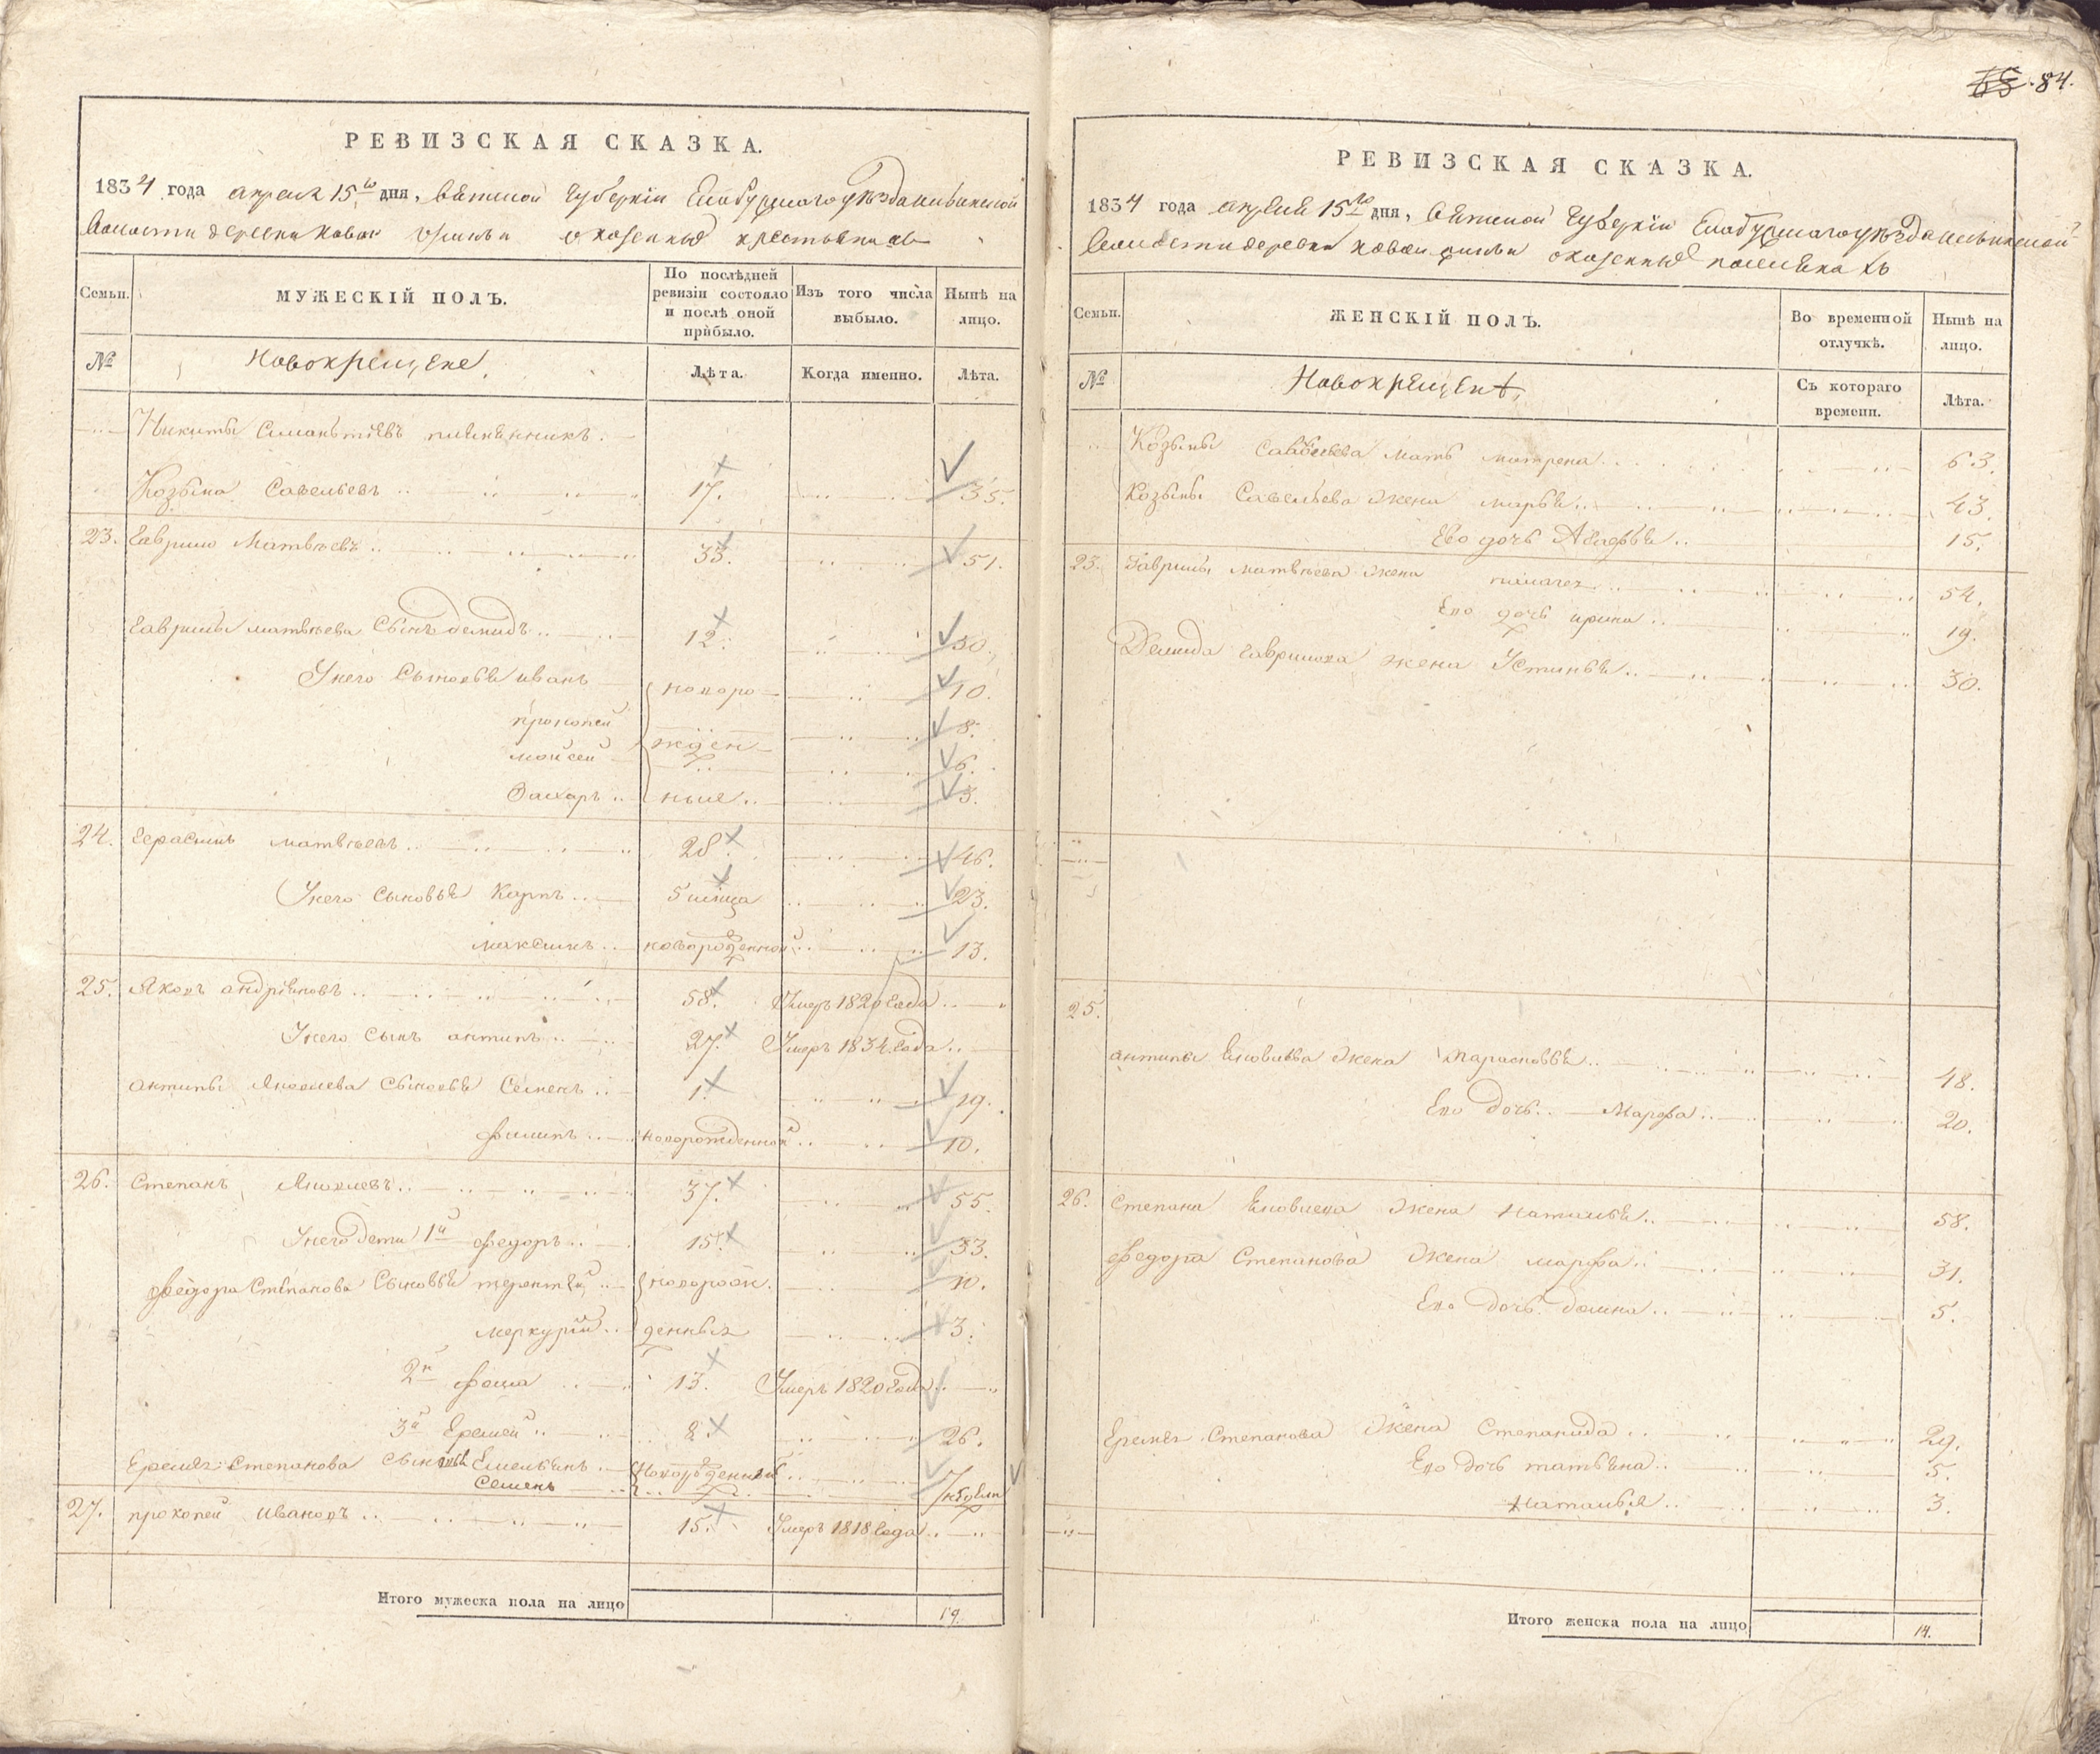 84.
РЕВИЗСКАЯ СКАЗКА.
1834 года апреля 15го дня, Вятской губерніи Елабужскаго уѣзда
Волости деревни Новой о казенныхъ крестьянахъ
Семьи. МУЖЕСКІЙ ПОЛЪ. По послѣдней ревизіи состояло и послѣ оной прибыло. Изъ того числа выбыло. Нынѣ на лицо.
№ Новокрещене. Лѣта. Когда именно. Лѣта.
Никиты племянникъ.
Козьма Савельевъ 17. 35.
23. Гаврило Матвѣевъ 33. 51.
Гаврилы Матвѣева Сынъ демидъ 12. 30.
У него Сыновья иванъ новоро 10.
прокопей жден 8.
моисей 6.
Захаръ ныя 3.
24. Герасимъ матвѣевъ 28. 46.
У него сыновья Карпъ 5 мѣсяца 23.
максимъ новорожденной 13.
25. Яковъ андрѣяновъ 58. Умеръ 1820 Года
У него Сынъ антипъ 27. Умеръ 1834 Года
антипы Яковлева Сыновья Семенъ 1. 19.
филипъ новорожденной 10.
26. Степанъ Яковлевъ 37. 55.
У него дети 1й федоръ 15. 33.
федора Степанова Сыновья терентей новорож 10.
меркурій денныя 3.
2й фома 13. Умеръ 1820 Года
3й Еремей 8. 26.
Еремея Степанова сыновья Емельянъ новорожденныя 7
Семенъ
27. прокопей ивановъ 15. Умеръ 1818 Года
Итого мужеска пола на лицо 19.
РЕВИЗСКАЯ СКАЗКА.
1834 года апреля 15го дня, Вятской губерніи Елабужскаго уѣзда
Волости деревни новой о казенныхъ поселянахъ
Семьи. ЖЕНСКІЙ ПОЛЪ. Во временной отлучкѣ. Нынѣ на лицо.
№ Новокрещенѣ. Съ котораго времени. Лѣта.
Козьмы Савельева мать матрена 63.
Козьмы Савельева жена марья 43.
Ево дочь 15.
23. Гаврилы матвѣева жена пелагея 54.
Ево дочь ирина 19.
Демида гаврилова жена Устинья 30.
25.
антипы Яковлева жена 48.
Ево дочь Марфа 20.
26. Степана Яковлева жена Наталья 58.
федора Степанова жена марфа 31.
Ево дочь домна 5.
Еремея Степанова жена Степанида 29.
Ево дочь татьяна 5.
Наталья 3.
Итого женска пола на лицо 14.